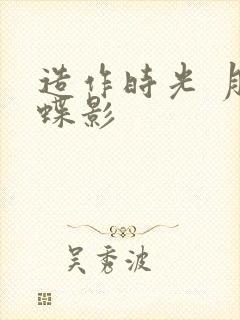 造作時光 月
蝶影
吴秀波